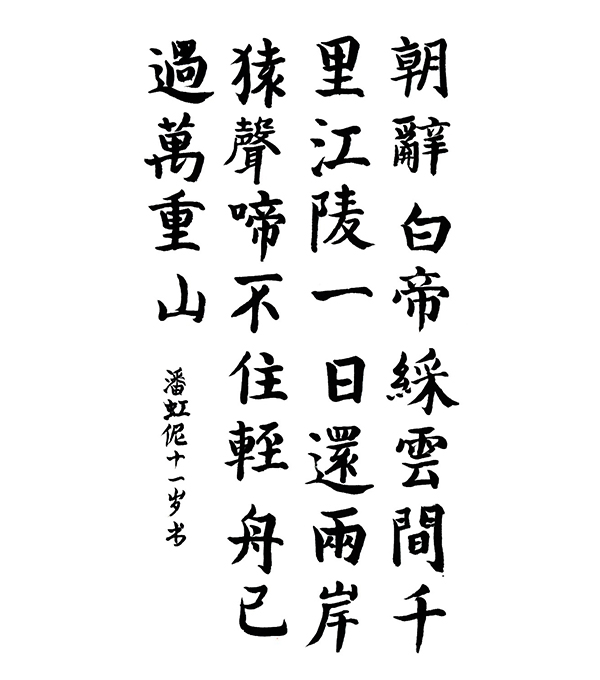 朝辭白帝綵雲間千
里江陵一日還兩岸
猿聲啼不住輕舟已
過萬重山
潘虹伲十一岁书